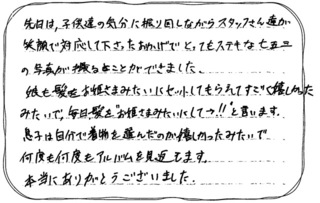 先日は、子供達の気分に振り回しながらスタッフさん達が
笑顔で対応して下さったおかげでとってもステキな七五三
の写真が撮ることができました。
娘も髪をお姫さまみたいにセットしてもらえてすごく嬉しかった
みたいで、毎日髪を"お姫さまみたいにしてっ!!"と言います。
息子は自分で着物を選んだのが嬉しかったみたいで
何度も何度もアルバムを見返してます。
本当にありがとうございました。